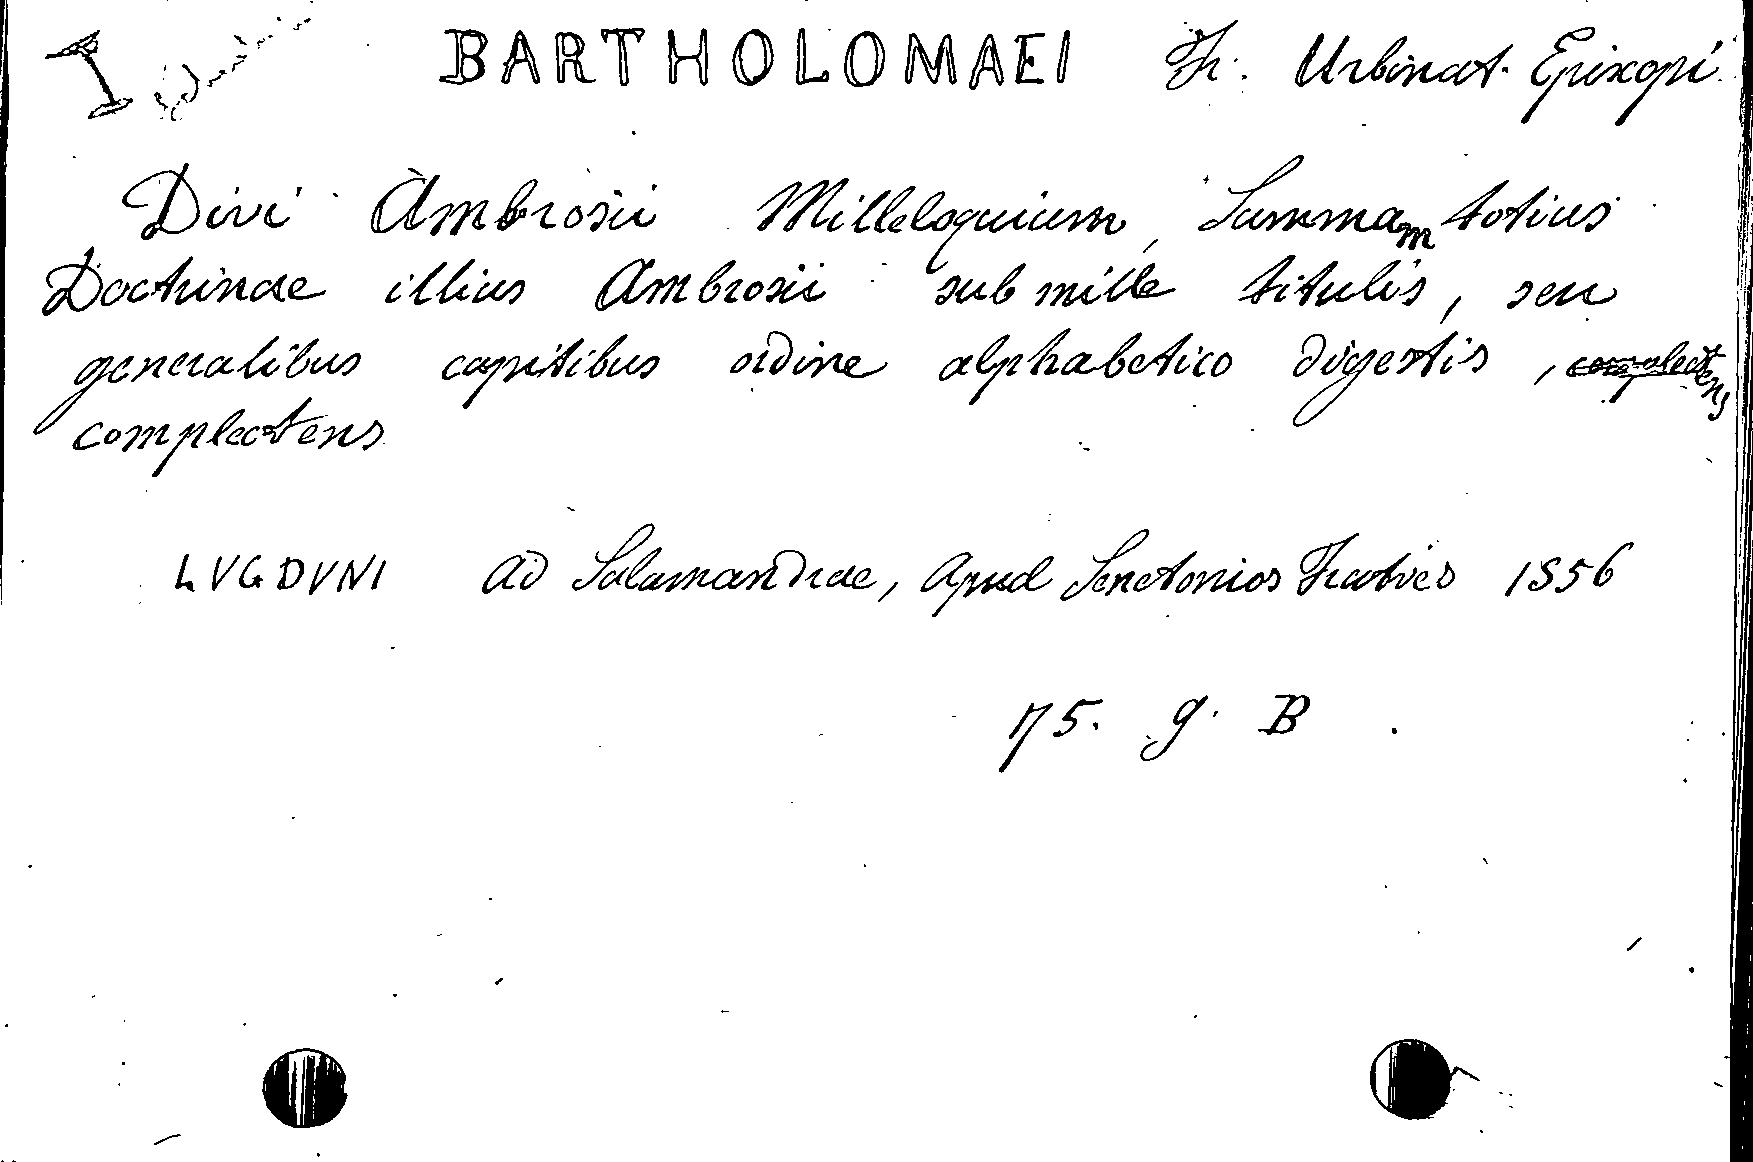 I BARTHOLOMAEI Fr. Urbinat. Episcopi
Divi Ambrosii Milleloquium, Summam totius
Doctrinae illius Ambrosii sub mille titulis, seu
generalibus capitibus ordine alphabetico digestis, complectens
complectens
LVGDVNI ad Salamandrae, apud Senetonios Fratres 1556
175. g. B